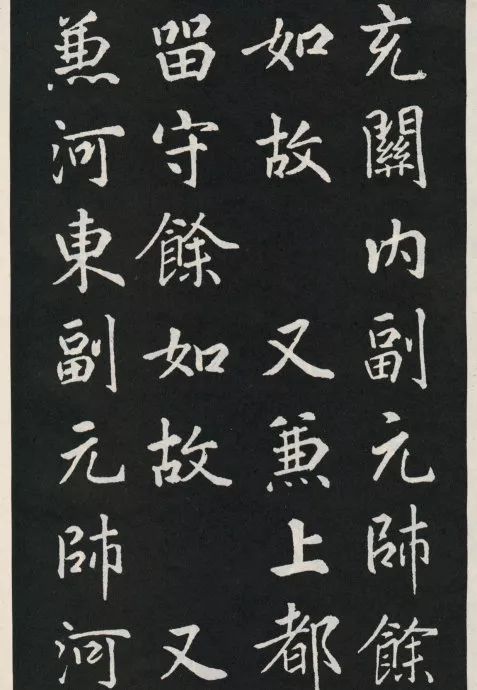 充關内副元帥餘
如故 又兼上都
留守餘如故 又
兼河東副元帥河